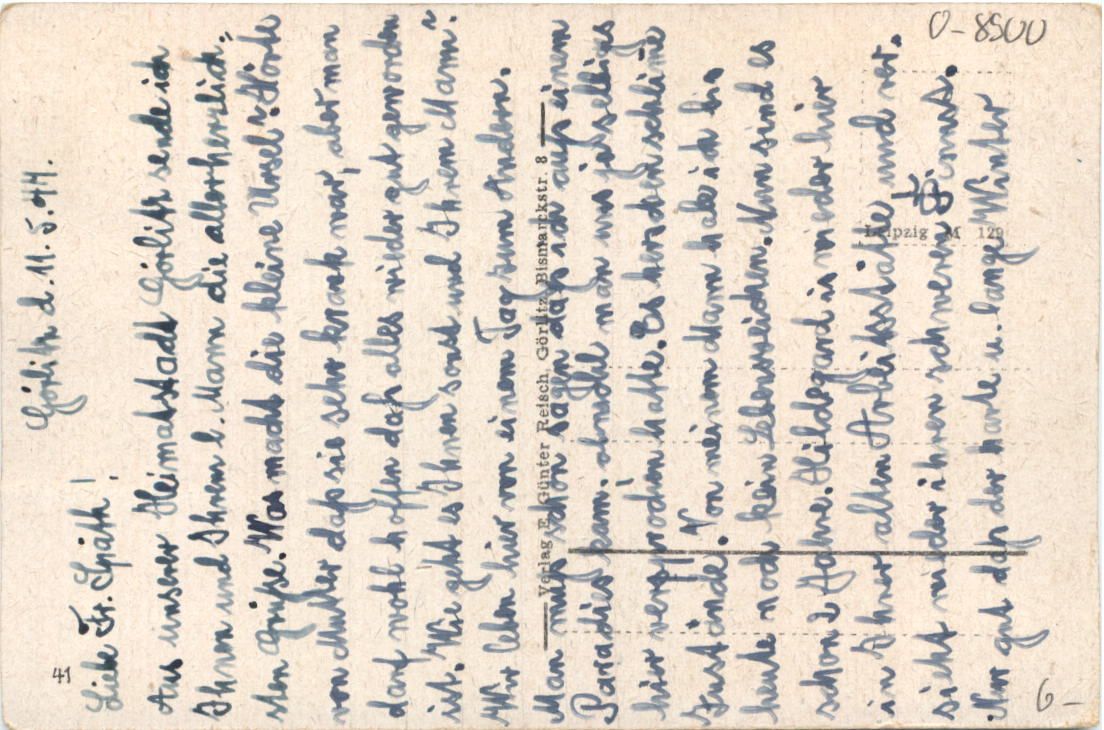 41
Görlitz d. 11.5.44.
Liebe Fr. Späth!
Aus unserer Heimatstadt Görlitz sende ich
Ihnen und Ihrem l. Mann die allerherzlich-
sten Grüße. Was macht die kleine Ursel? Hörte
von Mutter daß sie sehr krank war, aber man
darf wohl hoffen daß alles wieder gut geworden
ist. Wie geht es Ihnen sonst und Ihrem Mann?
Wir leben hier von einem Tag zum Andern.
Verlag E. Günter Reisch, Görlitz, Bismarckstr. 8
Man muß schon sagen daß ich aus einem
Parradies kam. man uns ja selbiges
hier versprochen hatte. Es herrschen schlimme
Zustände. Von meinem Mann habe ich bis
heute noch kein Lebenszeichen. Nun sind es
schon 2 Jahre. Hildegard is wieder hier
in Ihrer alten Arbeitsstätte und ver.
Leipzig M 129
sieht wieder ihren schweren Dienst.
Nur gut daß der harte u. lange Winter
O-8900
6-